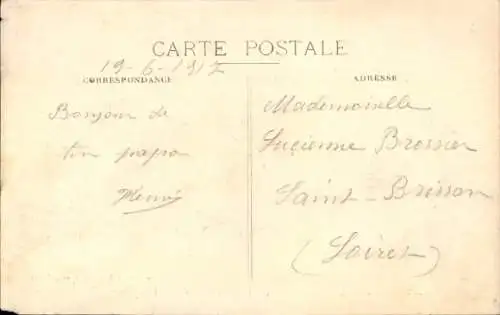 CARTE POSTALE
19-6-1917
CORRESPONDANCE
ADRESSE
Bonjour de
ton papa
Henri
Mademoiselle
Lucienne Brossier
Saint-Brisson
(Loiret)